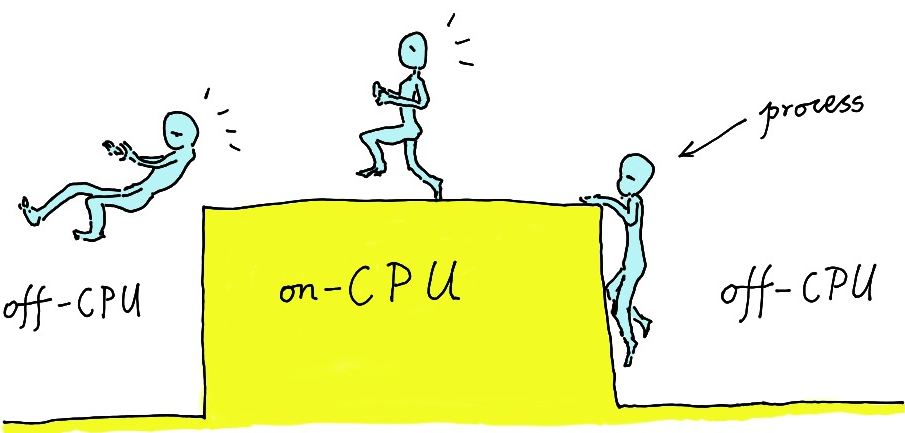 process
off-CPU
on-CPU
off-CPU